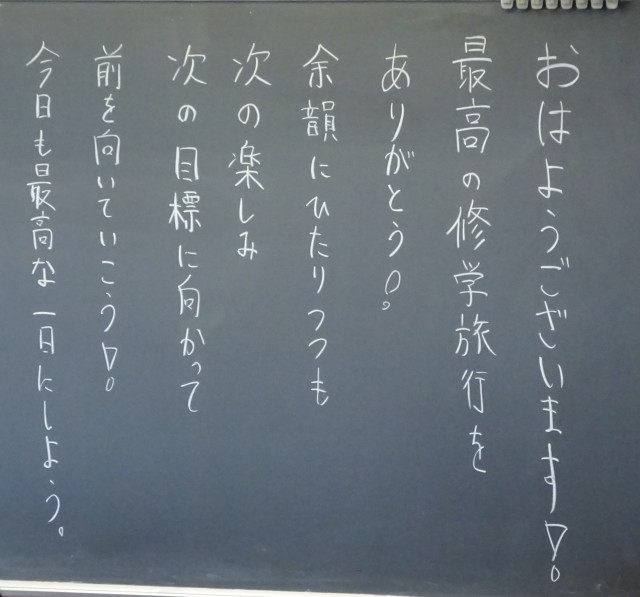 おはようございます!
最高の修学旅行を
ありがとう!
余韻にひたりつつも
次の楽しみ
次の目標に向かって
前を向いていこう!
今日も最高な一日にしよう。